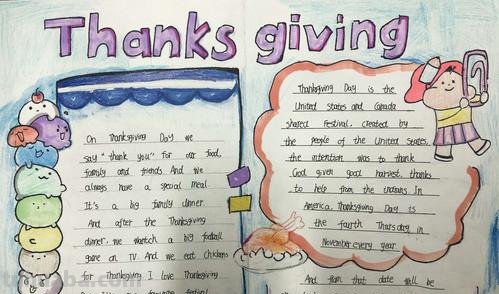 Thanks giving
On Thanksgiving Day we
say "thank you" for our food,
family and friends. And we
always have a special meal.
It's a big family dinner.
And after the Thanksgiving
dinner, we wantch a big football
game on TV. And we eat chickens
for Thanksgiving. I love Thanksgiving
Thanksgiving Day is the
United States and Canada
shared festival, created by
the people of the United States,
the intention was to thank
God given good harvest, thanks
to help from the Indians. In
America, Thanksgiving Day is
the fourth Thursday in
November every year.
And than that date will be